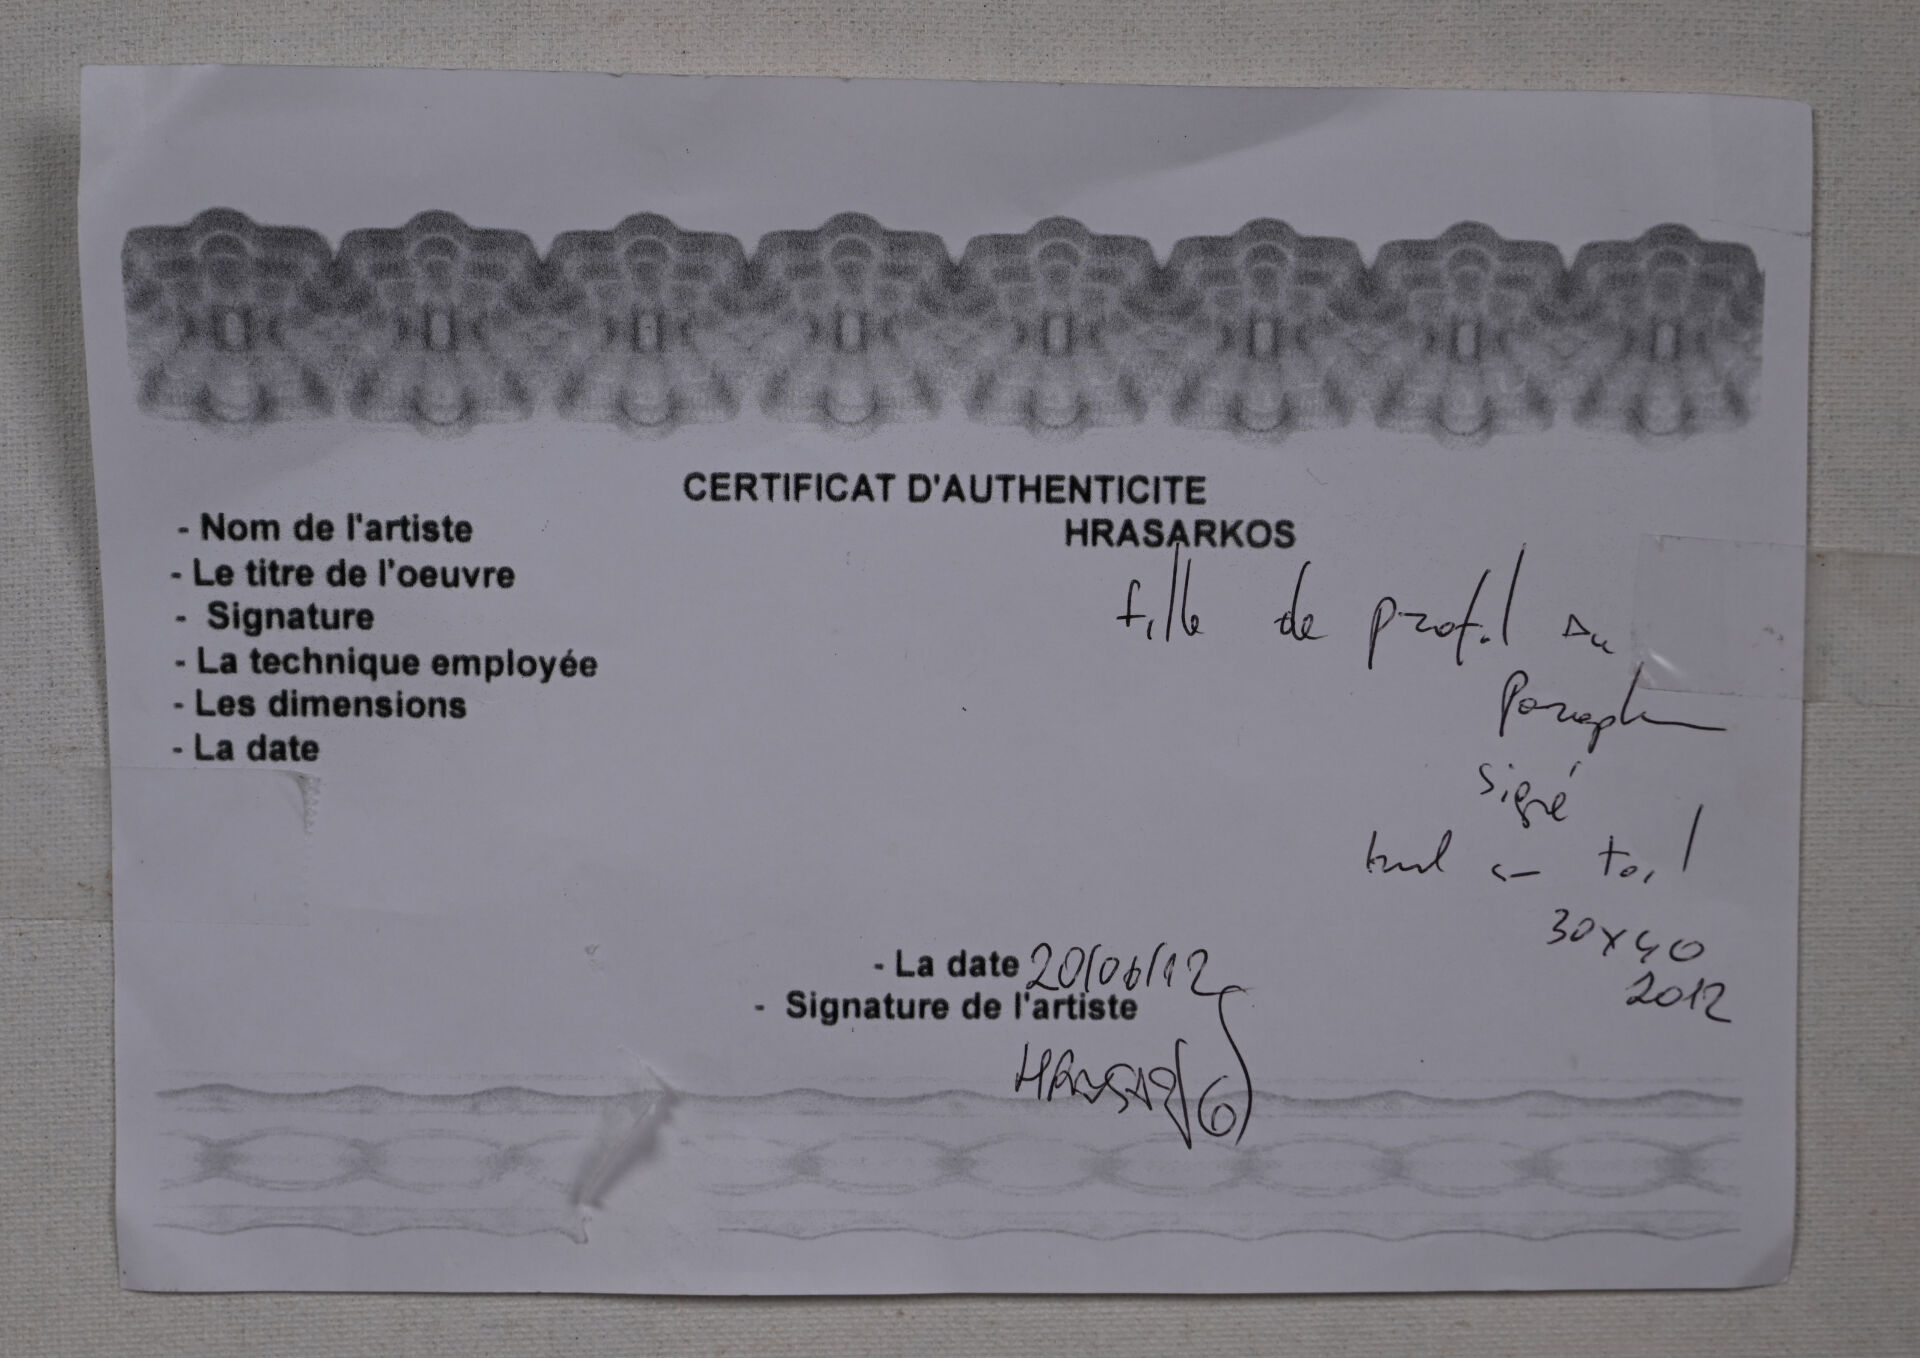 CERTIFICAT D'AUTHENTICITE
- Nom de l'artiste HRASARKOS
- Le titre de l'oeuvre fille de profil au
- Signature
- La technique employée
- Les dimensions
- La date
signé
sur toil
30x40
2012
- La date 20/06/12
- Signature de l'artiste